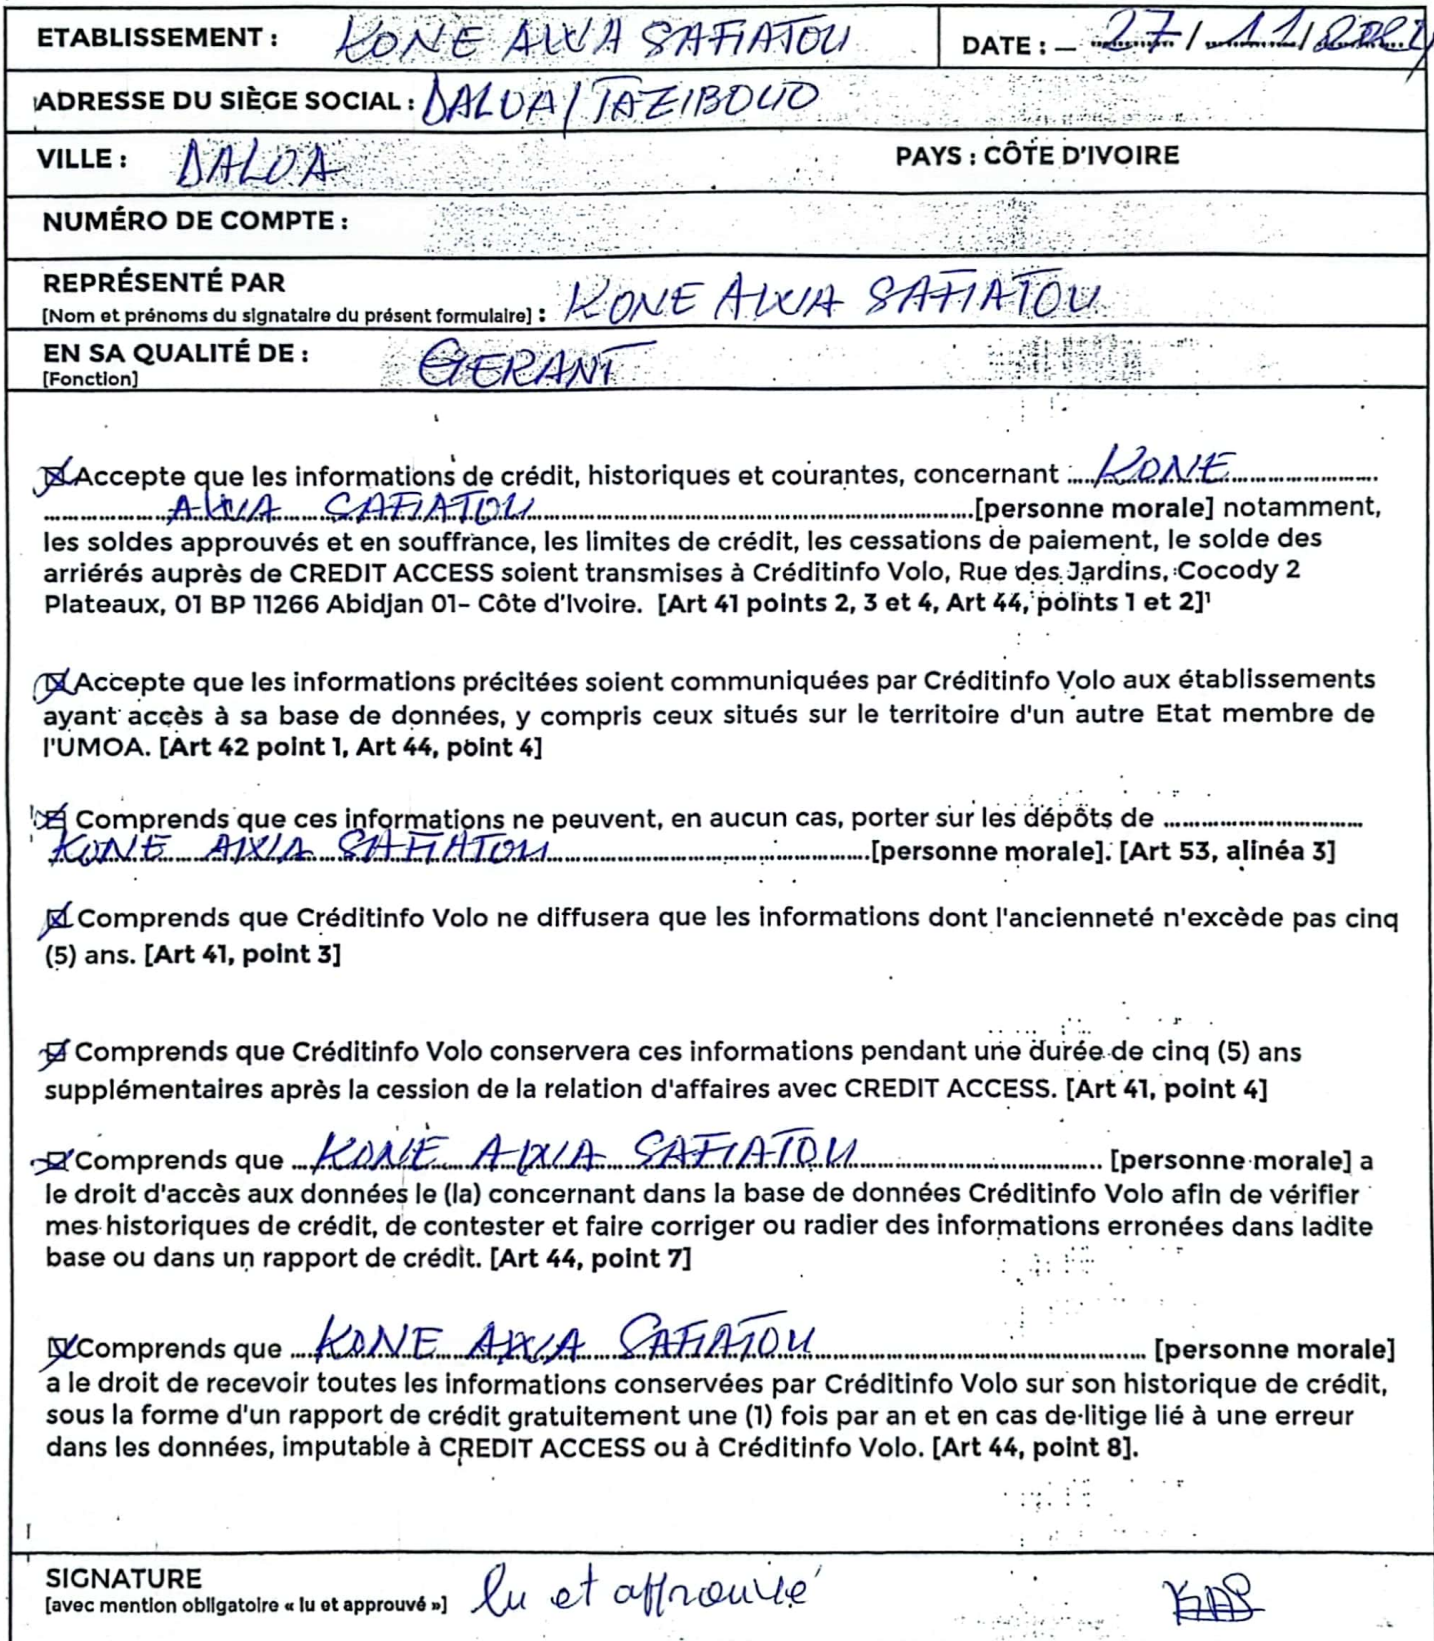 ETABLISSEMENT : KONE AWA SAFIATOU DATE : – 27/11/2024
ADRESSE DU SIÈGE SOCIAL : DALOA/TAZIBOUO
VILLE : DALOA PAYS : CÔTE D'IVOIRE
NUMÉRO DE COMPTE :
REPRÉSENTÉ PAR
[Nom et prénoms du signataire du présent formulaire] : KONE AWA SAFIATOU
EN SA QUALITÉ DE : GERANT
[Fonction]
Accepte que les informations de crédit, historiques et courantes, concernant : KONE
AWA SAFIATOU [personne morale] notamment,
les soldes approuvés et en souffrance, les limites de crédit, les cessations de paiement, le solde des
arriérés auprès de CREDIT ACCESS soient transmises à Créditinfo Volo, Rue des Jardins, Cocody 2
Plateaux, 01 BP 11266 Abidjan 01- Côte d'Ivoire. [Art 41 points 2, 3 et 4, Art 44, points 1 et 2]¹
Accepte que les informations précitées soient communiquées par Créditinfo Volo aux établissements
ayant accès à sa base de données, y compris ceux situés sur le territoire d'un autre Etat membre de
l'UMOA. [Art 42 point 1, Art 44, point 4]
Comprends que ces informations ne peuvent, en aucun cas, porter sur les dépôts de
KONE AWA SAFIATOU [personne morale]. [Art 53, alinéa 3]
Comprends que Créditinfo Volo ne diffusera que les informations dont l'ancienneté n'excède pas cinq
(5) ans. [Art 41, point 3]
Comprends que Créditinfo Volo conservera ces informations pendant une durée de cinq (5) ans
supplémentaires après la cession de la relation d'affaires avec CREDIT ACCESS. [Art 41, point 4]
Comprends que KONE AWA SAFIATOU [personne morale] a
le droit d'accès aux données le (la) concernant dans la base de données Créditinfo Volo afin de vérifier
mes historiques de crédit, de contester et faire corriger ou radier des informations erronées dans ladite
base ou dans un rapport de crédit. [Art 44, point 7]
Comprends que KONE AWA SAFIATOU [personne morale]
a le droit de recevoir toutes les informations conservées par Créditinfo Volo sur son historique de crédit,
sous la forme d'un rapport de crédit gratuitement une (1) fois par an et en cas de litige lié à une erreur
dans les données, imputable à CREDIT ACCESS ou à Créditinfo Volo. [Art 44, point 8].
SIGNATURE
[avec mention obligatoire « lu et approuvé »] lu et approuvé KAS